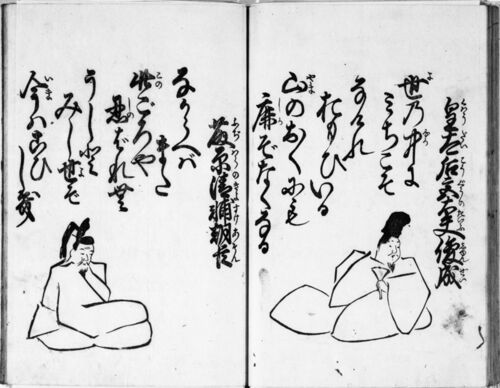 皇太后宮大夫俊成
世乃中よ
みちこそ
なけれ
おもひいる
山のおくにも
鹿ぞなくなる
藤原清輔朝臣
ながらへば
また
此ごろや
忍ばれむ
うしと
みし世ぞ
今はこひ
しき